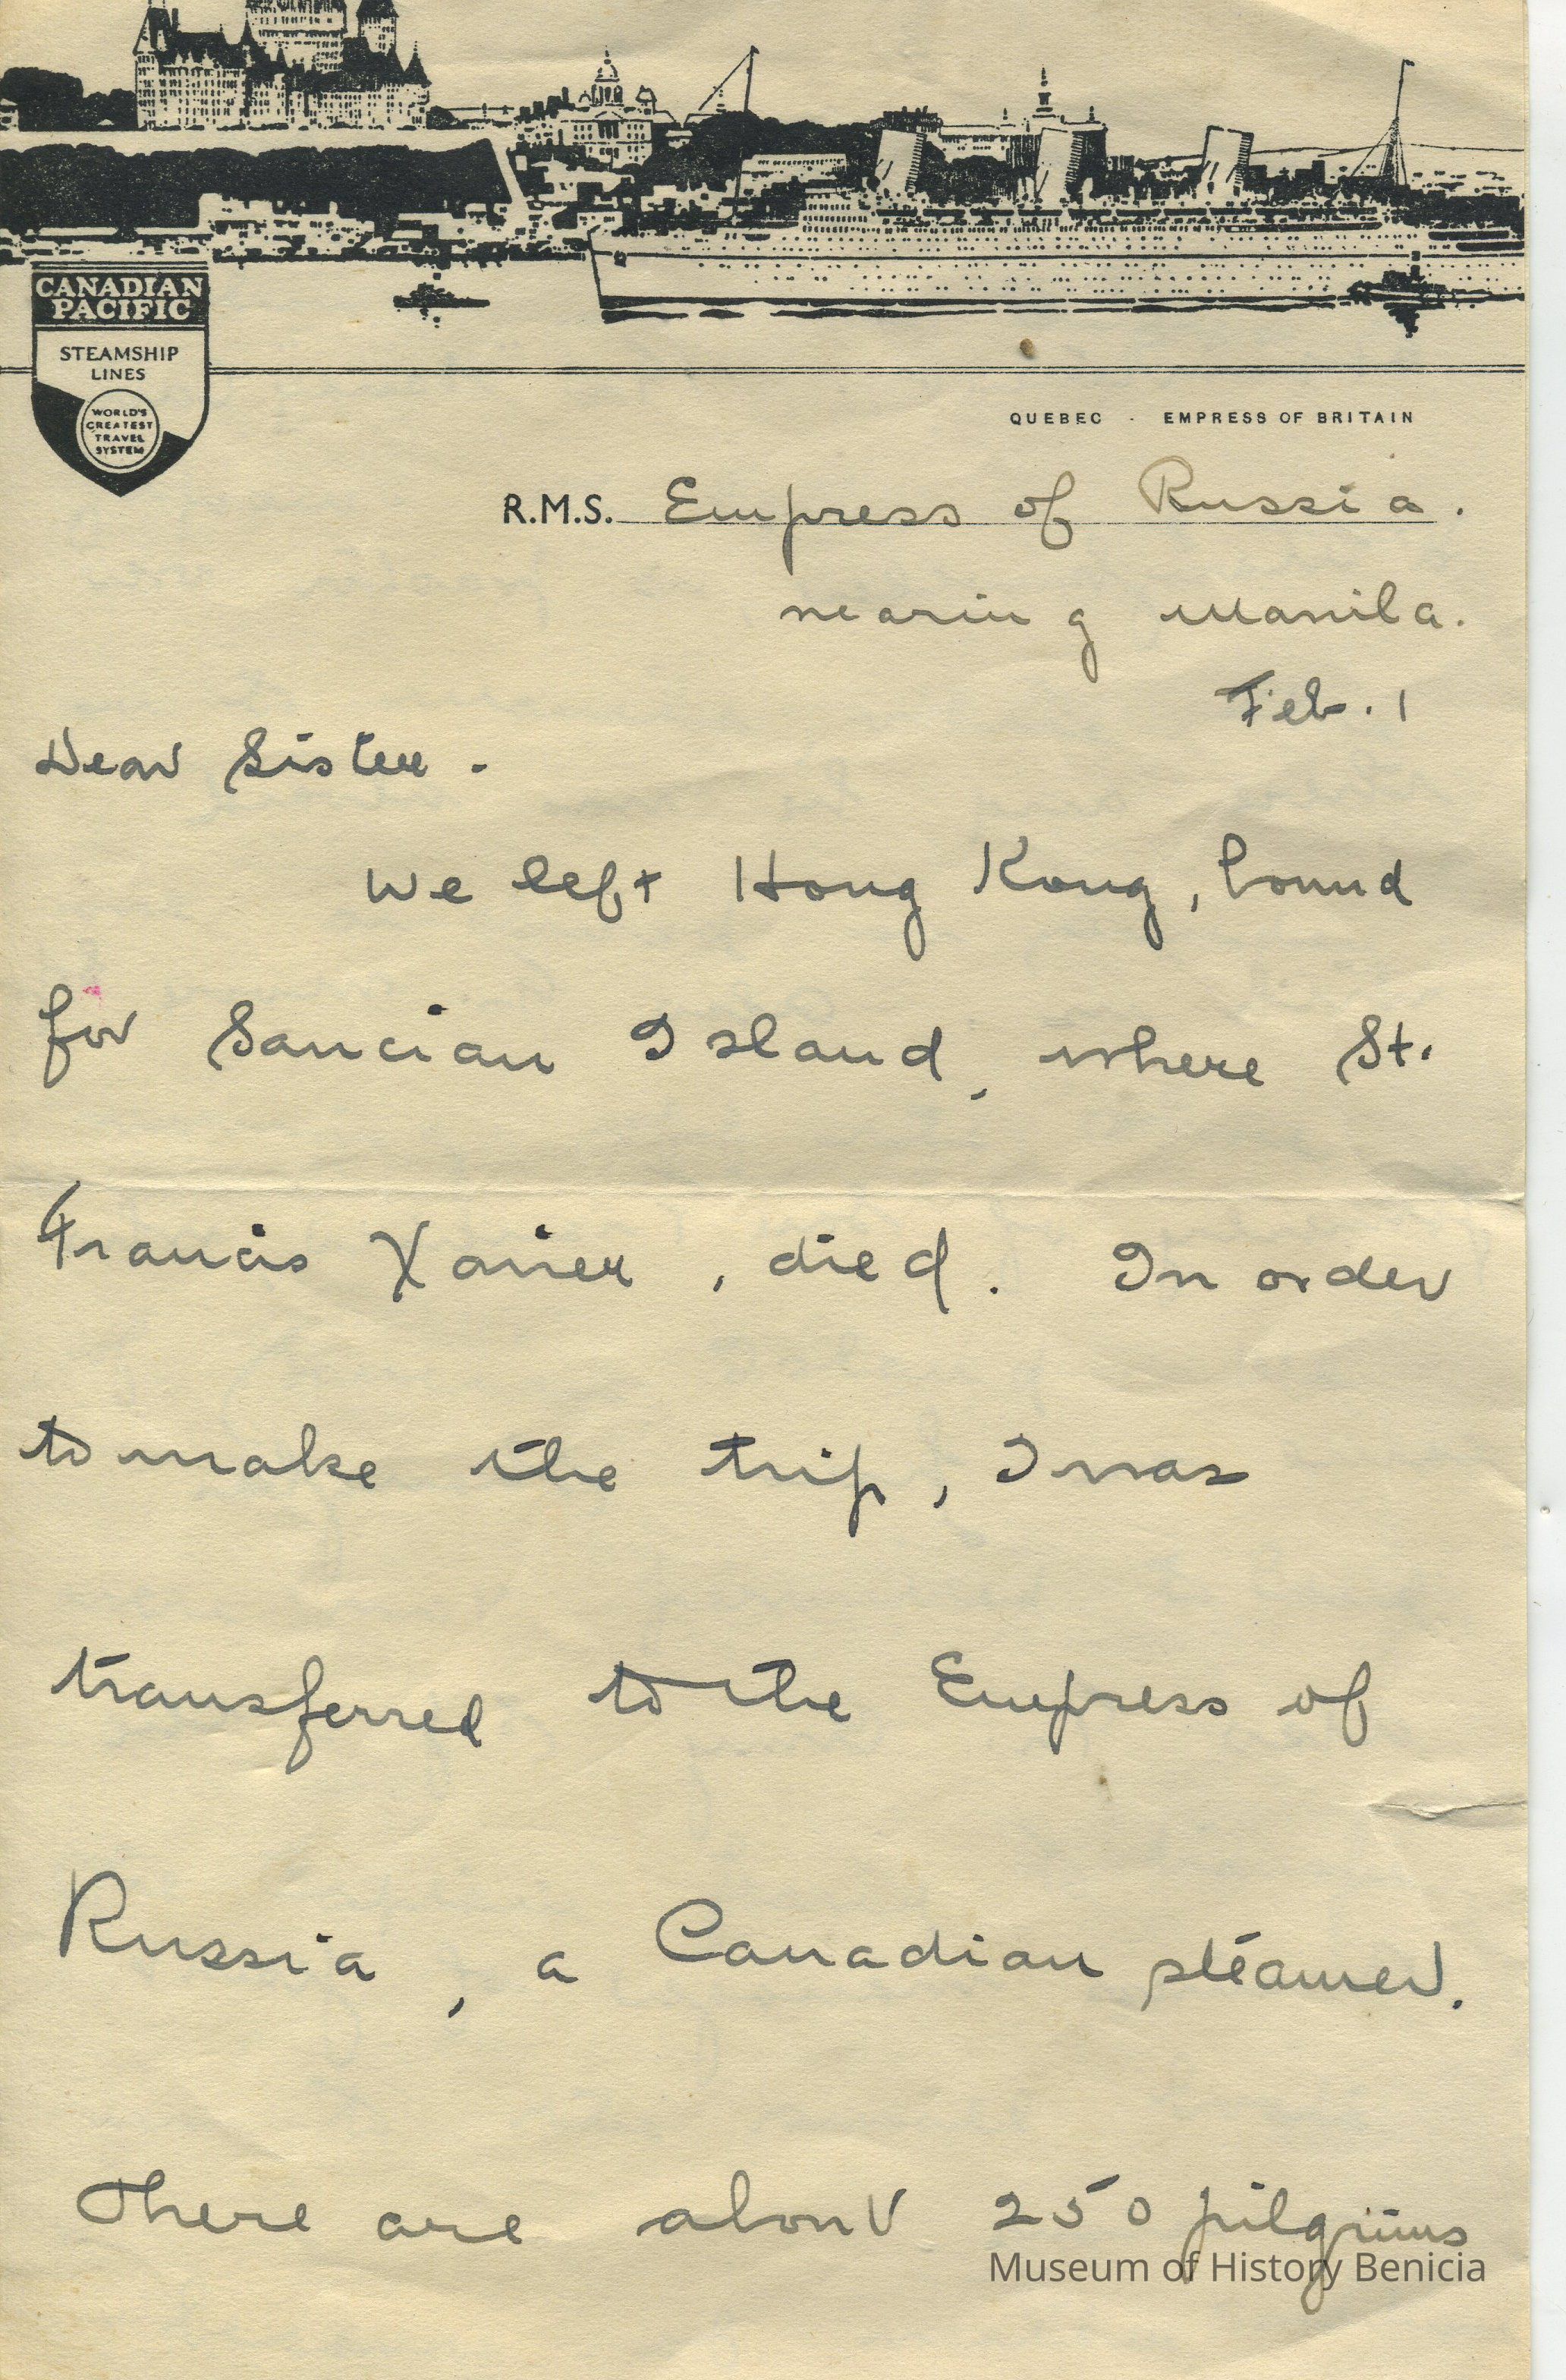 CANADIAN
PACIFIC
STEAMSHIP
LINES
WORLD'S
GREATEST
TRAVEL
SYSTEM
QUEBEC - EMPRESS OF BRITAIN
R.M.S. Empress of Russia.
nearing Manila.
Feb. 1
Dear Sister.
We left Hong Kong, bound
for Sancian Island, where St.
Francis Xavier, died. In order
to make the trip, I was
transferred to the Empress of
Russia, a Canadian steamer.
There are about 250 pilgrims
Museum of History Benicia